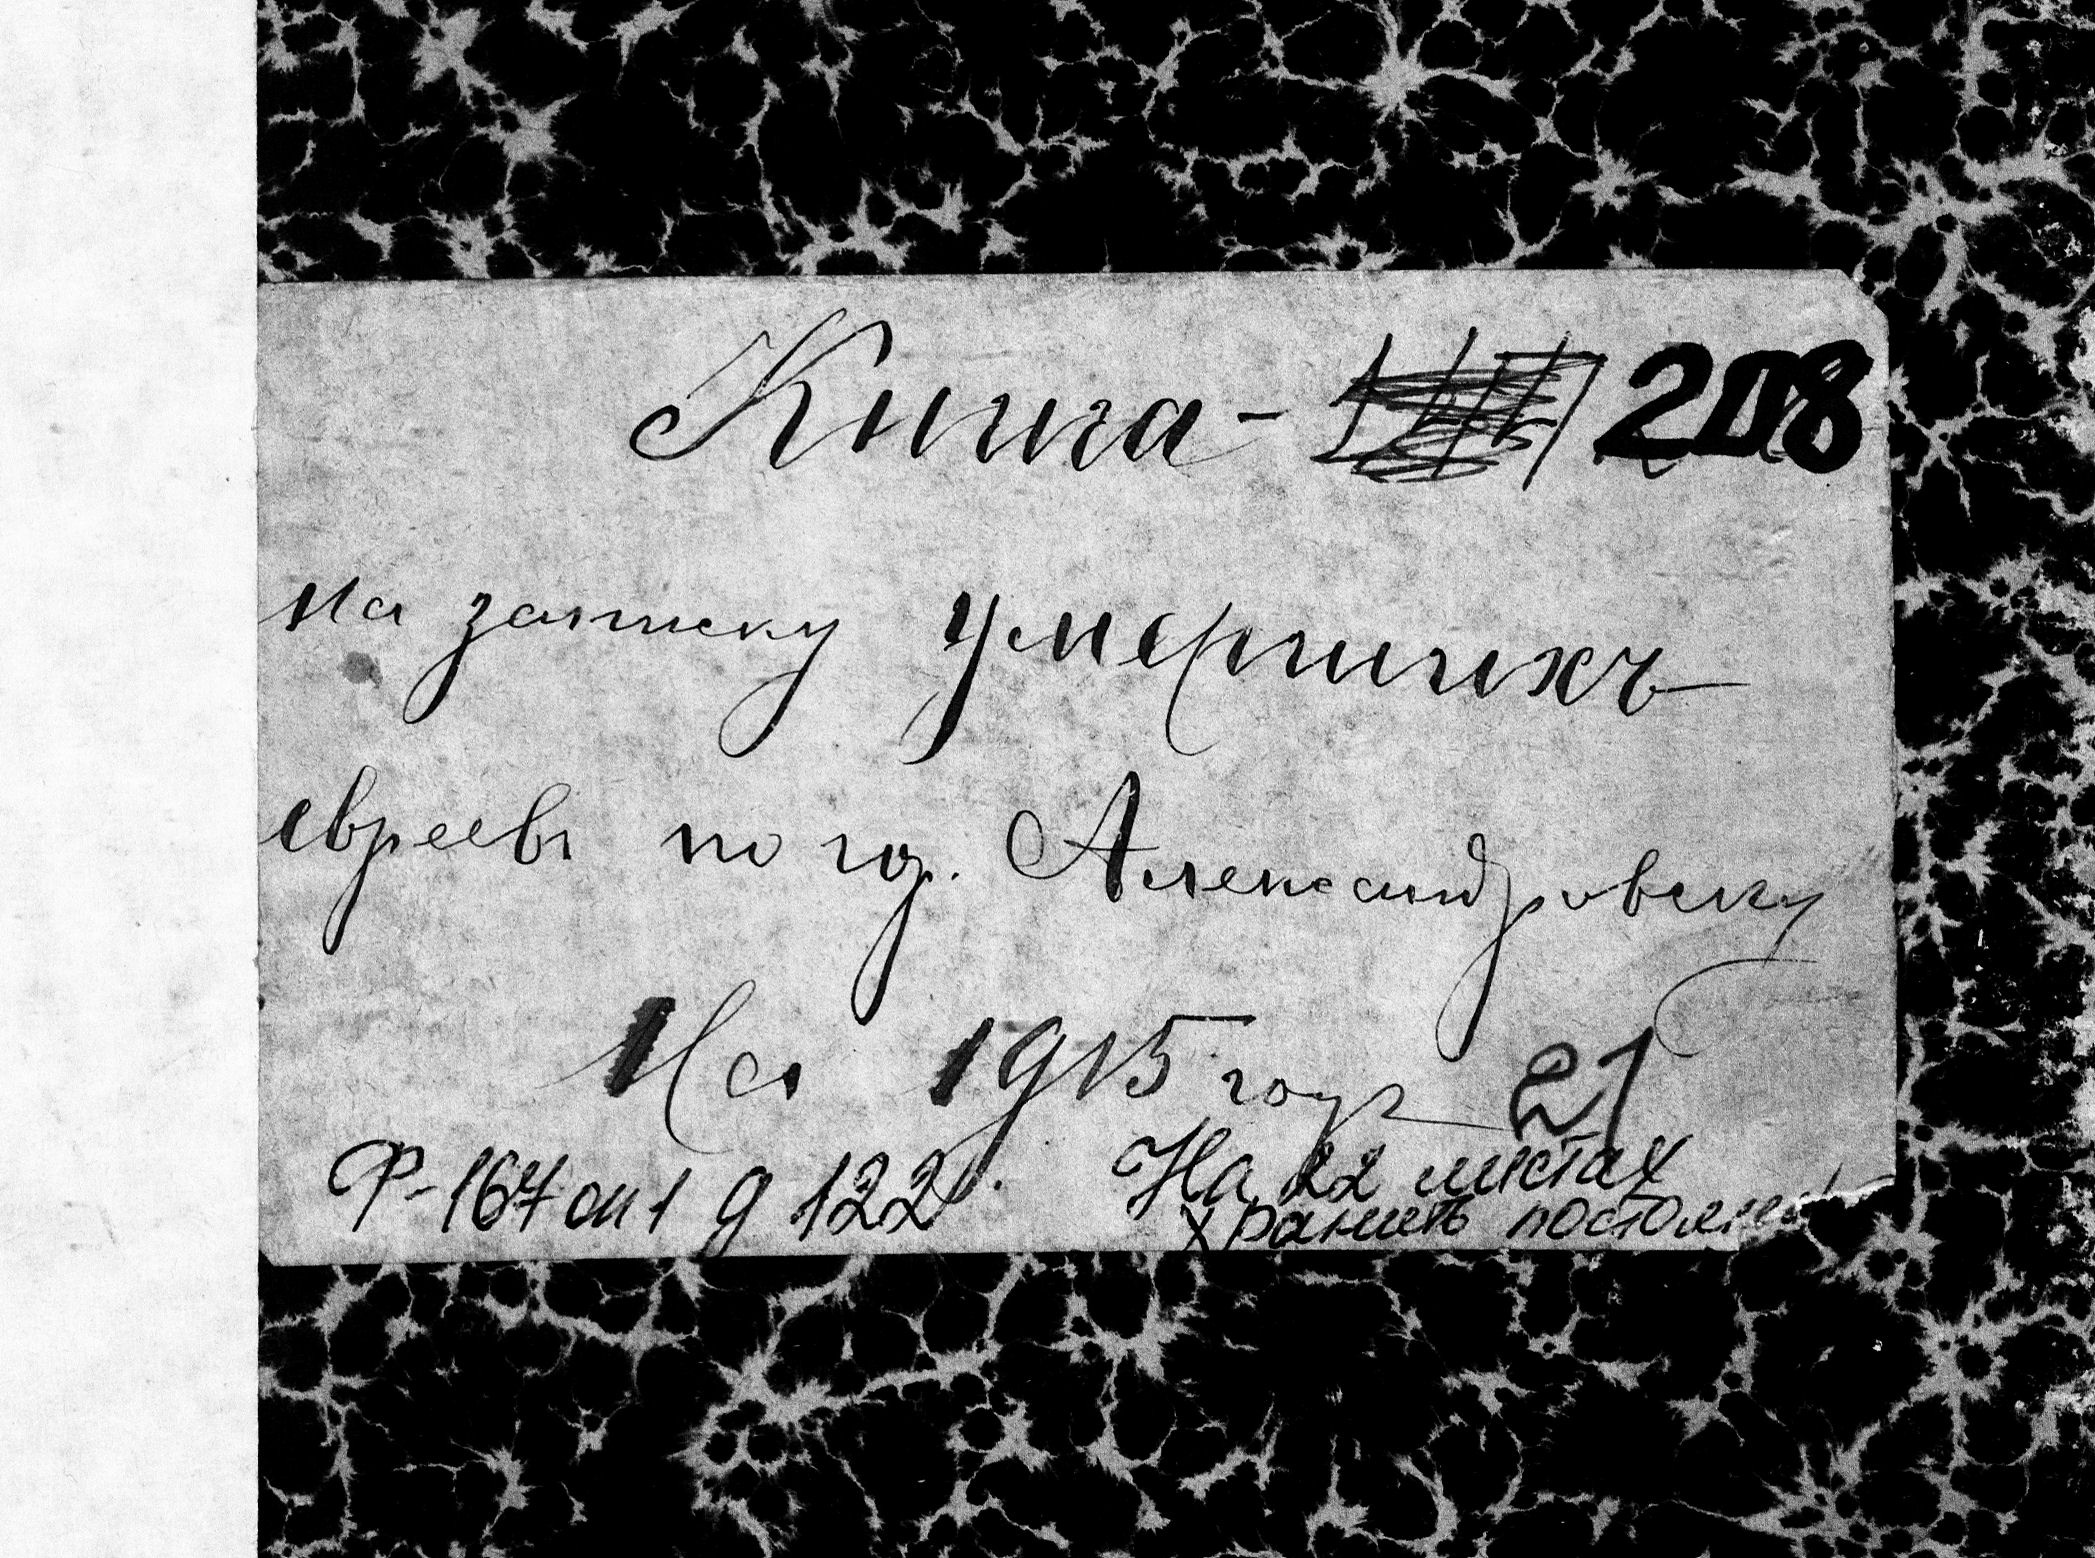 Книга - 208
на записку умершихъ
евреевъ по гор. Александровску
На 1915 годъ 21
Р-167 оп 1 д 122. На 22 листах
хранить постоянно